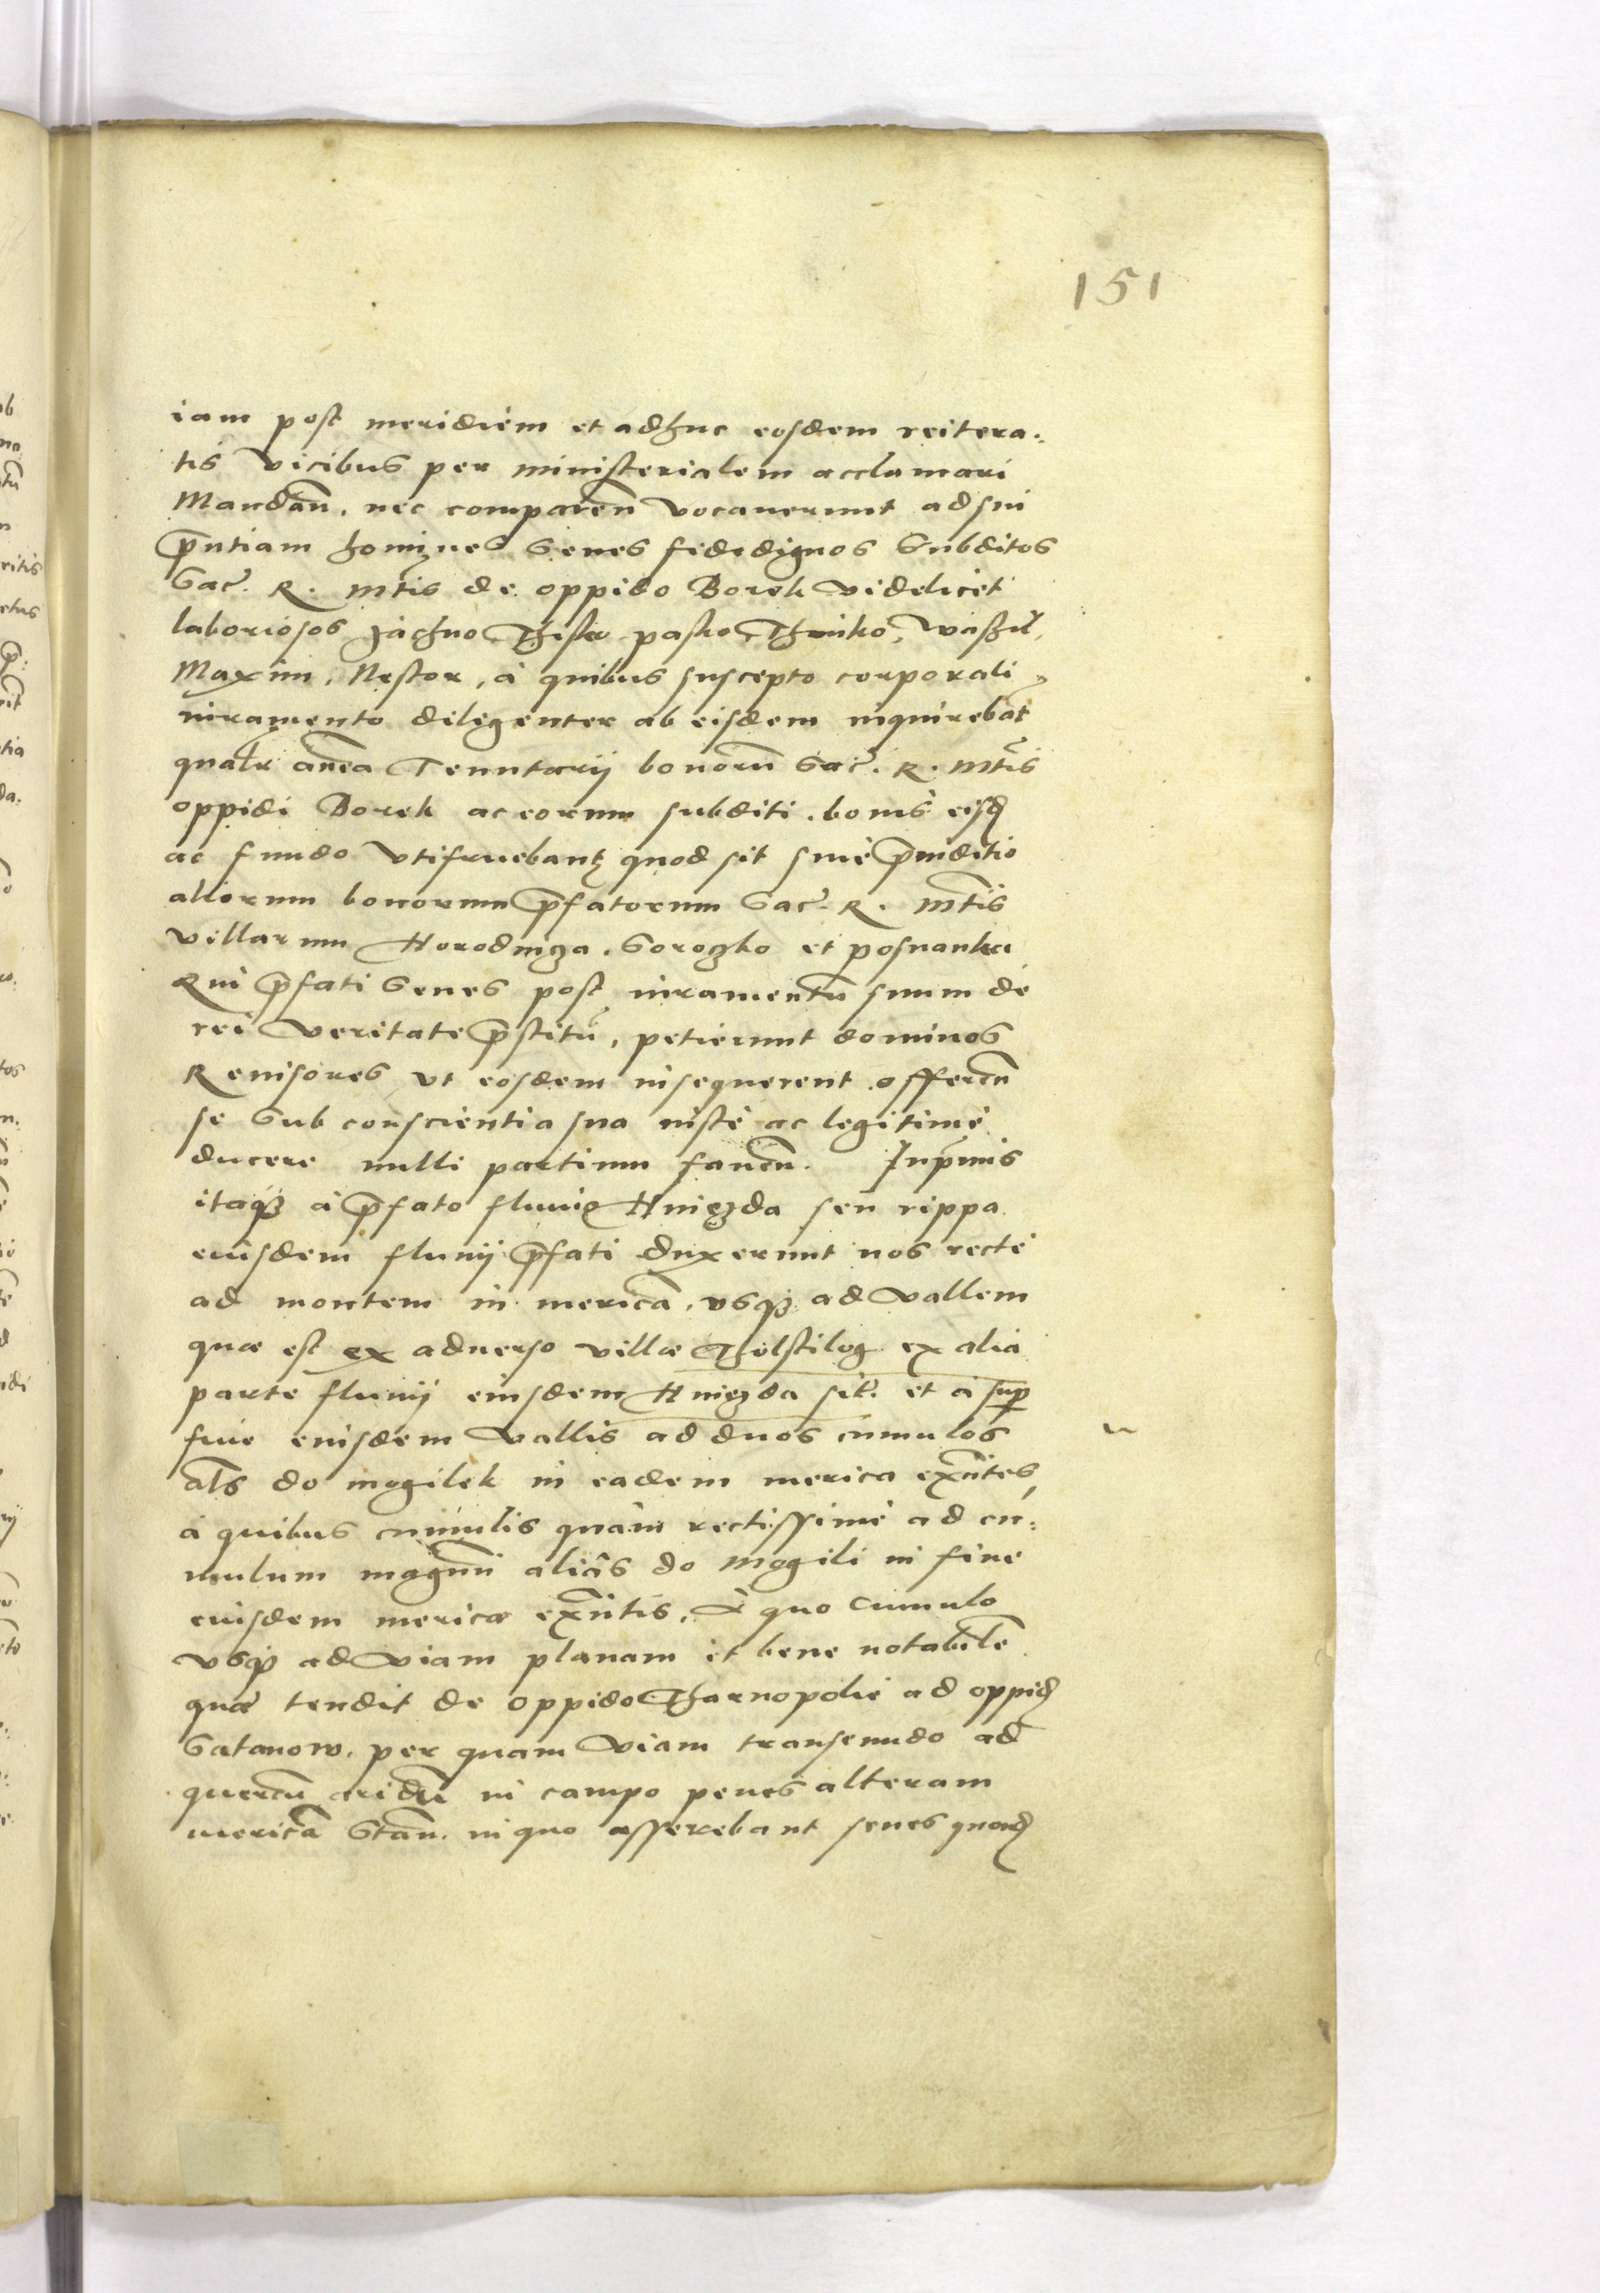 151
iam post meridiem et adhuc eosdem reitera:
tis vicibus per ministerialem acclamari
Mandāń. nec compareń vocauerunt ad sui
p̄ntiam homines Senes fidedignos Subditos
Sac. R. Mtis de oppido Borek videlicet
laboriosos Jachno pasko,
Maxim, Nestor, à quibus suscepto corporali
iuramento diligenter ab eisdem inquirebāt
qualr ānea Tenutarij bonorū Sac. R. Mtis
oppidi Borek ac eorum subditi. bonis eisd
ac fundo vtifruebantr quod sit sine p̄iuditio
aliorum bonorum p̄fatorum Sac. R. Mtis
villarum Horodnicza. Soroczko et posnanka
Qui p̄fati Senes post iuramentū suum de
rei veritate p̄stitū, petierunt dominos
Reuisores vt eosdem insequerent. offereń
se Sub conscientia sua iustè ac legitimè
ducere nulli partium faueń. Inp̄mis
itaqз à p̄fato fluuio Hniezda seu rippa
eiusdem fluuij p̄fati duxerunt nos rectè
ad montem in mericā. vsqз ad Vallem
quæ est ex aduerso villæ Tholstilog ex alia
parte fluuij eiusdem Hniezda sit. et à sup
fine eiusdem Vallis ad duos cumulos
als do mogilek in eadem merica exn̄tes,
à quibus cumulis quàm rectissimè ad cu:
mulum magnū aliās do Mogili in fine
eiusdem mericæ exn̄tis, à quo Cumulo
vsqз ad viam planam et bene notabilē
quæ tendit de oppido Tharnopolie ad oppid
Satanow. per quam viam transeundo ad
quercū aridū in campo penes alteram
mericā Stāń. in quo asserebant senes quond